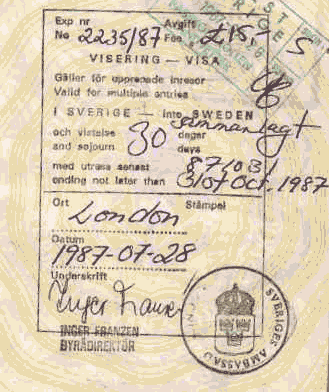 Exp nr Avgift
No 2235/87 Fee £15,-
VISERING — VISA
Gäller för upprepade inresor
Valid for multiple entries
I SVERIGE — into SWEDEN
och vistelse 30 dagar sammanlagt
and sojourn days
med utresa senast 87/031
ending not later than 31 Oct. 1987
Ort Stämpel
London
Datum
1987-07-28
Underskrift
Inger Franzén
INGER FRANZEN
BYRÅDIREKTÖR
SVERIGES AMBASSAD